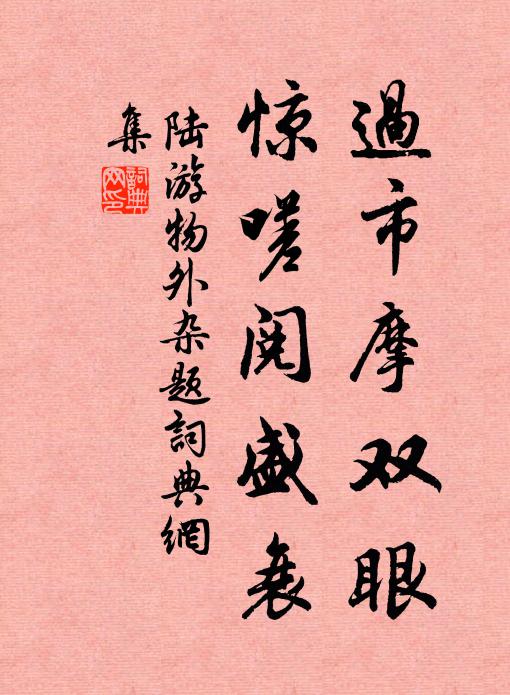 過市摩双眼
惊嗟阅盛衰
陆游物外杂题詞典網
集
詞典網印